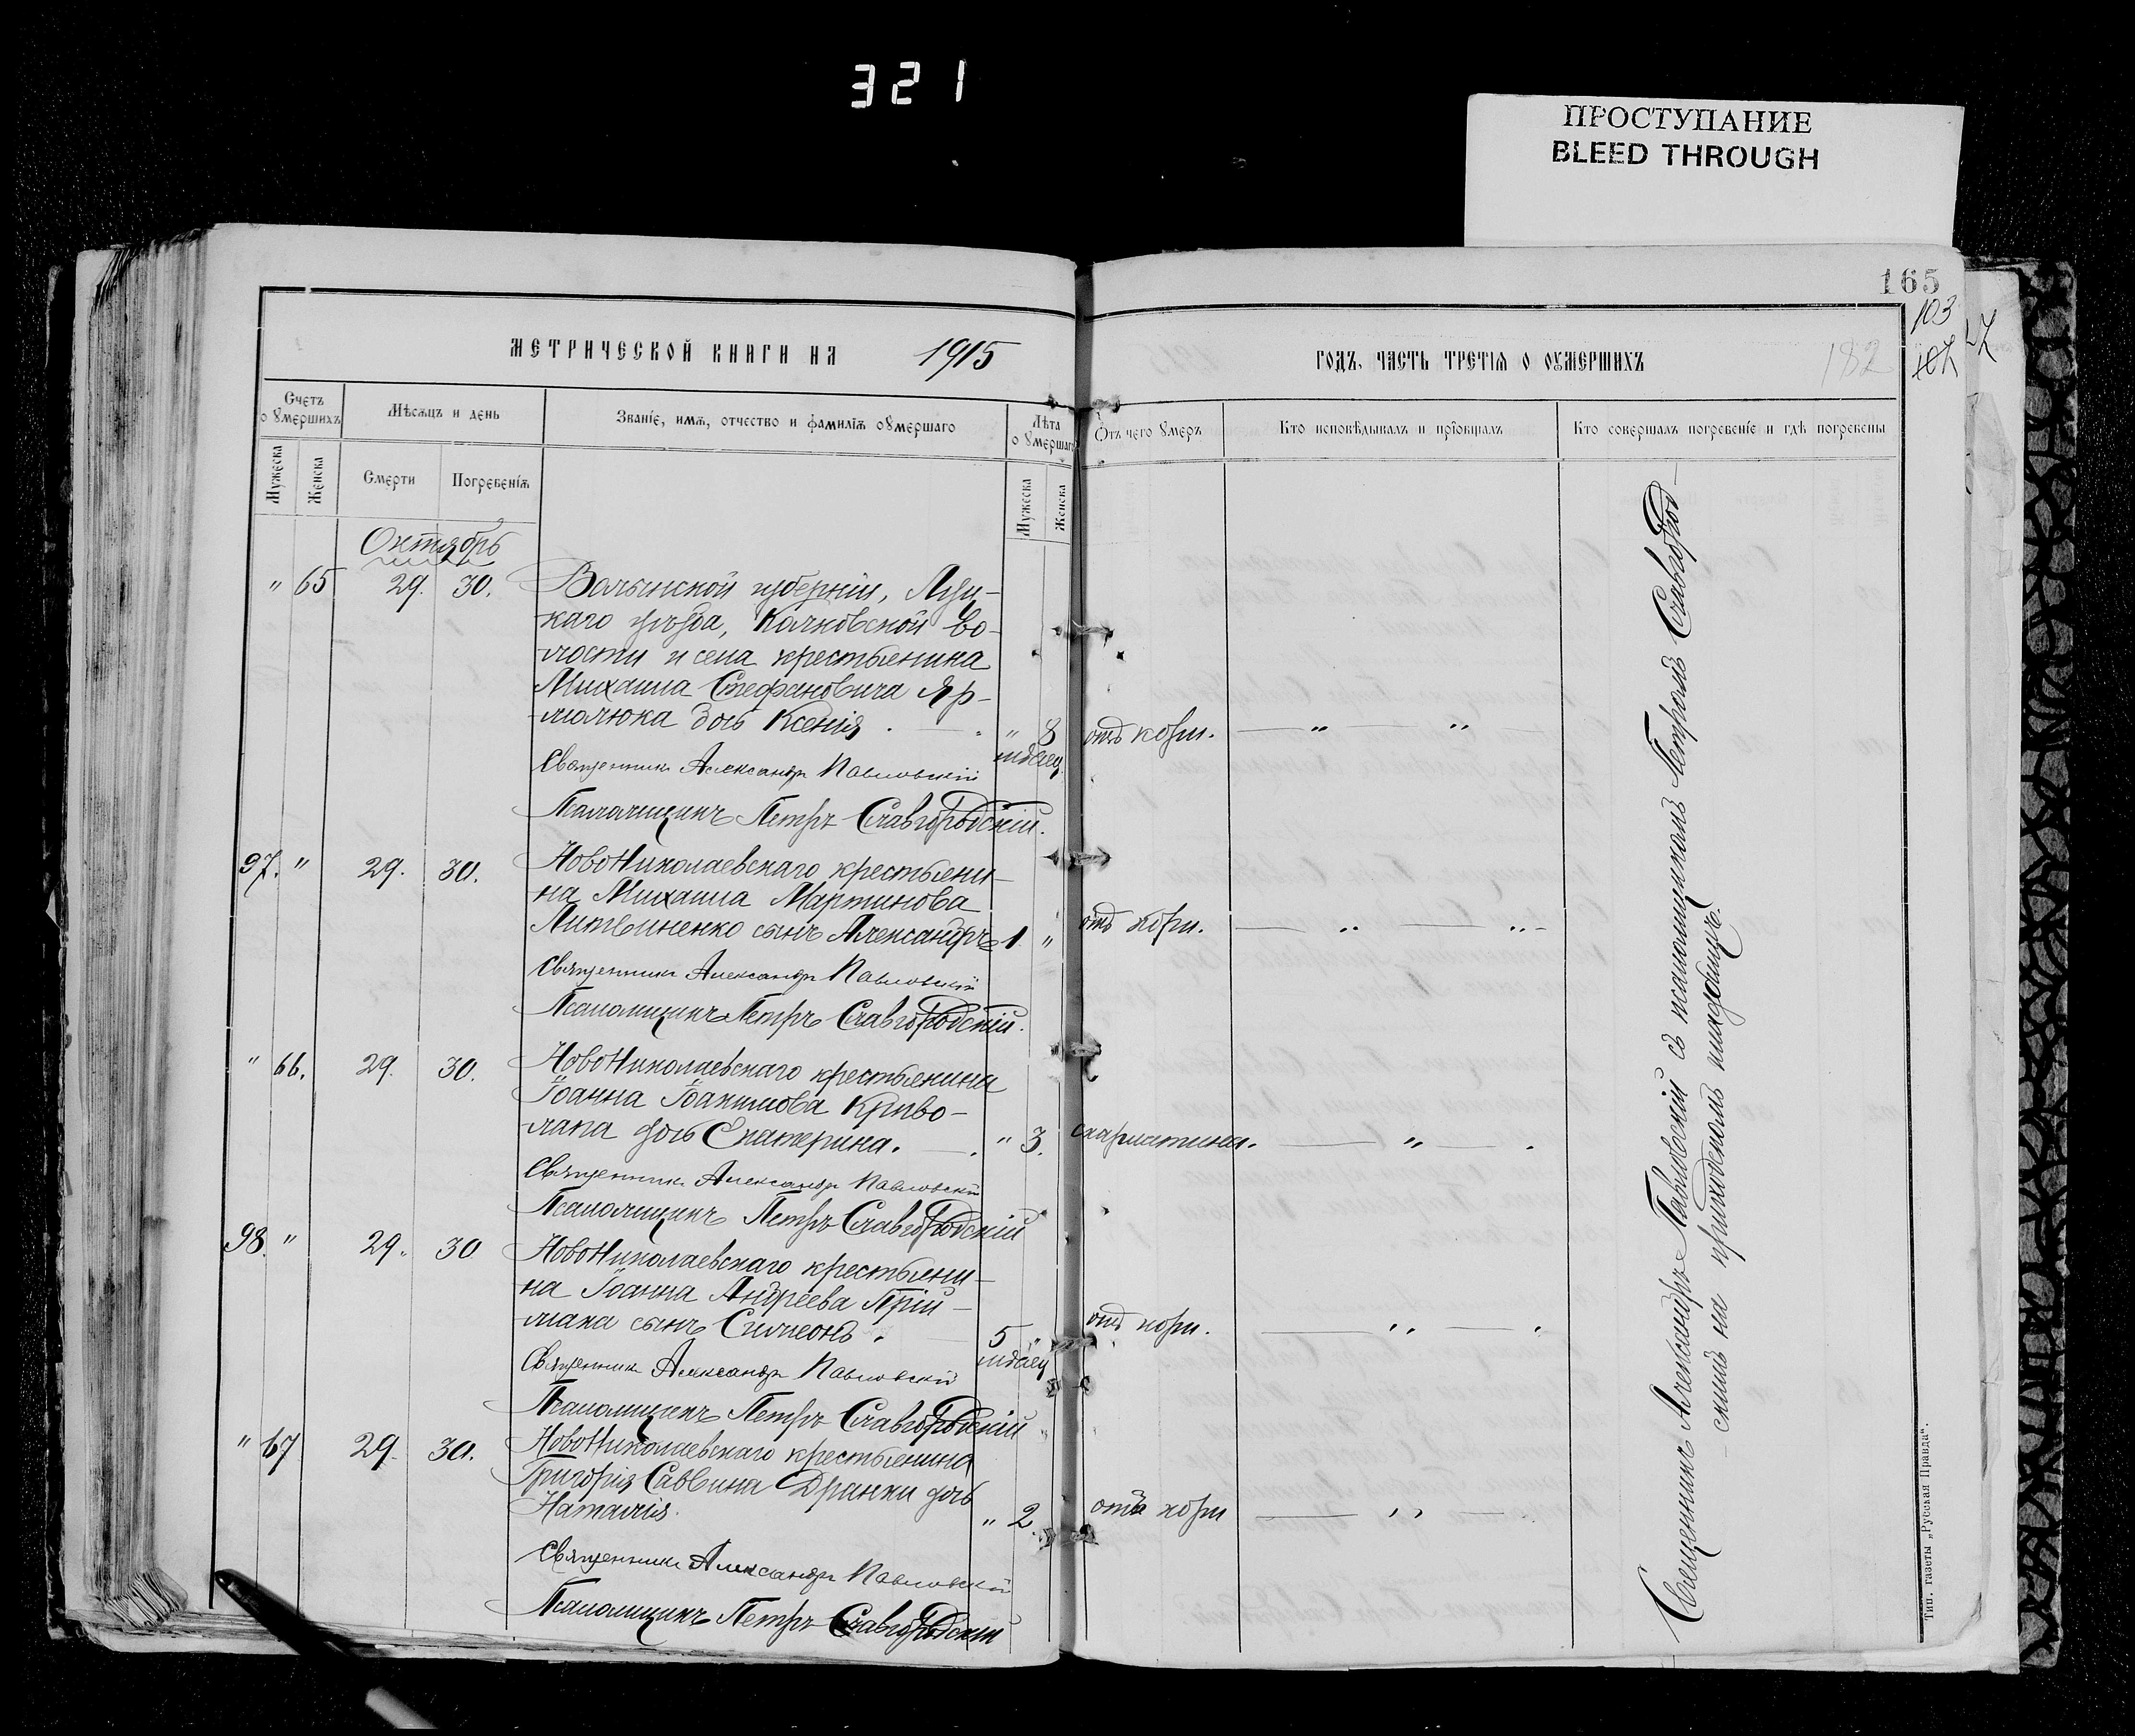 321
ПРОСТУПАНИЕ
BLEED THROUGH
165
103
182
МЕТРИЧЕСКОЙ КНИГИ НА 1915
ГОДЪ, ЧАСТЬ ТРЕТІЯ О ОУМЕРШИХЪ
Счетъ оумершихъ
Мѣсяцъ и день
Званіе, имя, отчество и фамилія оумершаго
Лѣта оумершаго
Отъ чего умеръ
Кто исповѣдывалъ и пріобщалъ
Кто совершалъ погребеніе и гдѣ погребены
Мужеска
Женска
Смерти
Погребенія
Мужеска
Женска
Октябрь
" 65 29. 30. Волынской губерніи, Луц-
каго уѣзда, Колковской во-
лости и села крестьянина
Михаила Стефановича Яр-
молюка дочь Ксенія. " 8 мѣсяц. отъ кори. " "
Священникъ Александръ Павловскій
Псаломщикъ Петръ Славгородскій.
97. " 29. 30. Новониколаевскаго крестьяни-
на Михаила Мартинова
Литвиненко сынъ Александръ 1. " отъ кори. " "
Священникъ Александръ Павловскій
Псаломщикъ Петръ Славгородскій.
" 66. 29. 30. Новониколаевскаго крестьянина
Іоанна Іоакимова Криво-
лапа дочь Екатерина. " 3. скарлатины. "
Священникъ Александръ Павловскій
Псаломщикъ Петръ Славгородскій
98. " 29. 30 Новониколаевскаго крестьяни-
на Іоанна Андреева Прій-
мака сынъ Симеонъ. 5 мѣсяц " отъ кори. "
Священникъ Александръ Павловскій
Псаломщикъ Петръ Славгородскій
" 67 29. 30. Новониколаевскаго крестьянина
Григорія Саввина Дранки дочь
Наталія. " 2. отъ кори "
Священникъ Александръ Павловскій
Псаломщикъ Петръ Славгородскій
Священникъ Александръ Павловскій съ псаломщикомъ Петромъ Славгород-
скимъ на приходскомъ кладбищѣ.
Тип. газеты „Русская Правда“.